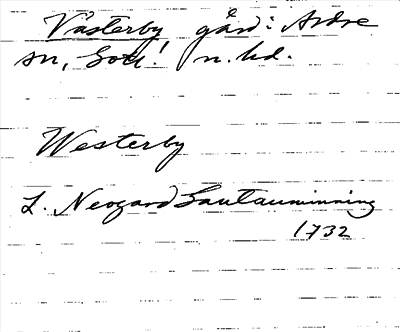 Västerby gård i Ardre
sn, Gotl. n. hd.
Westerby
L. Neogard Gautauminning
1732